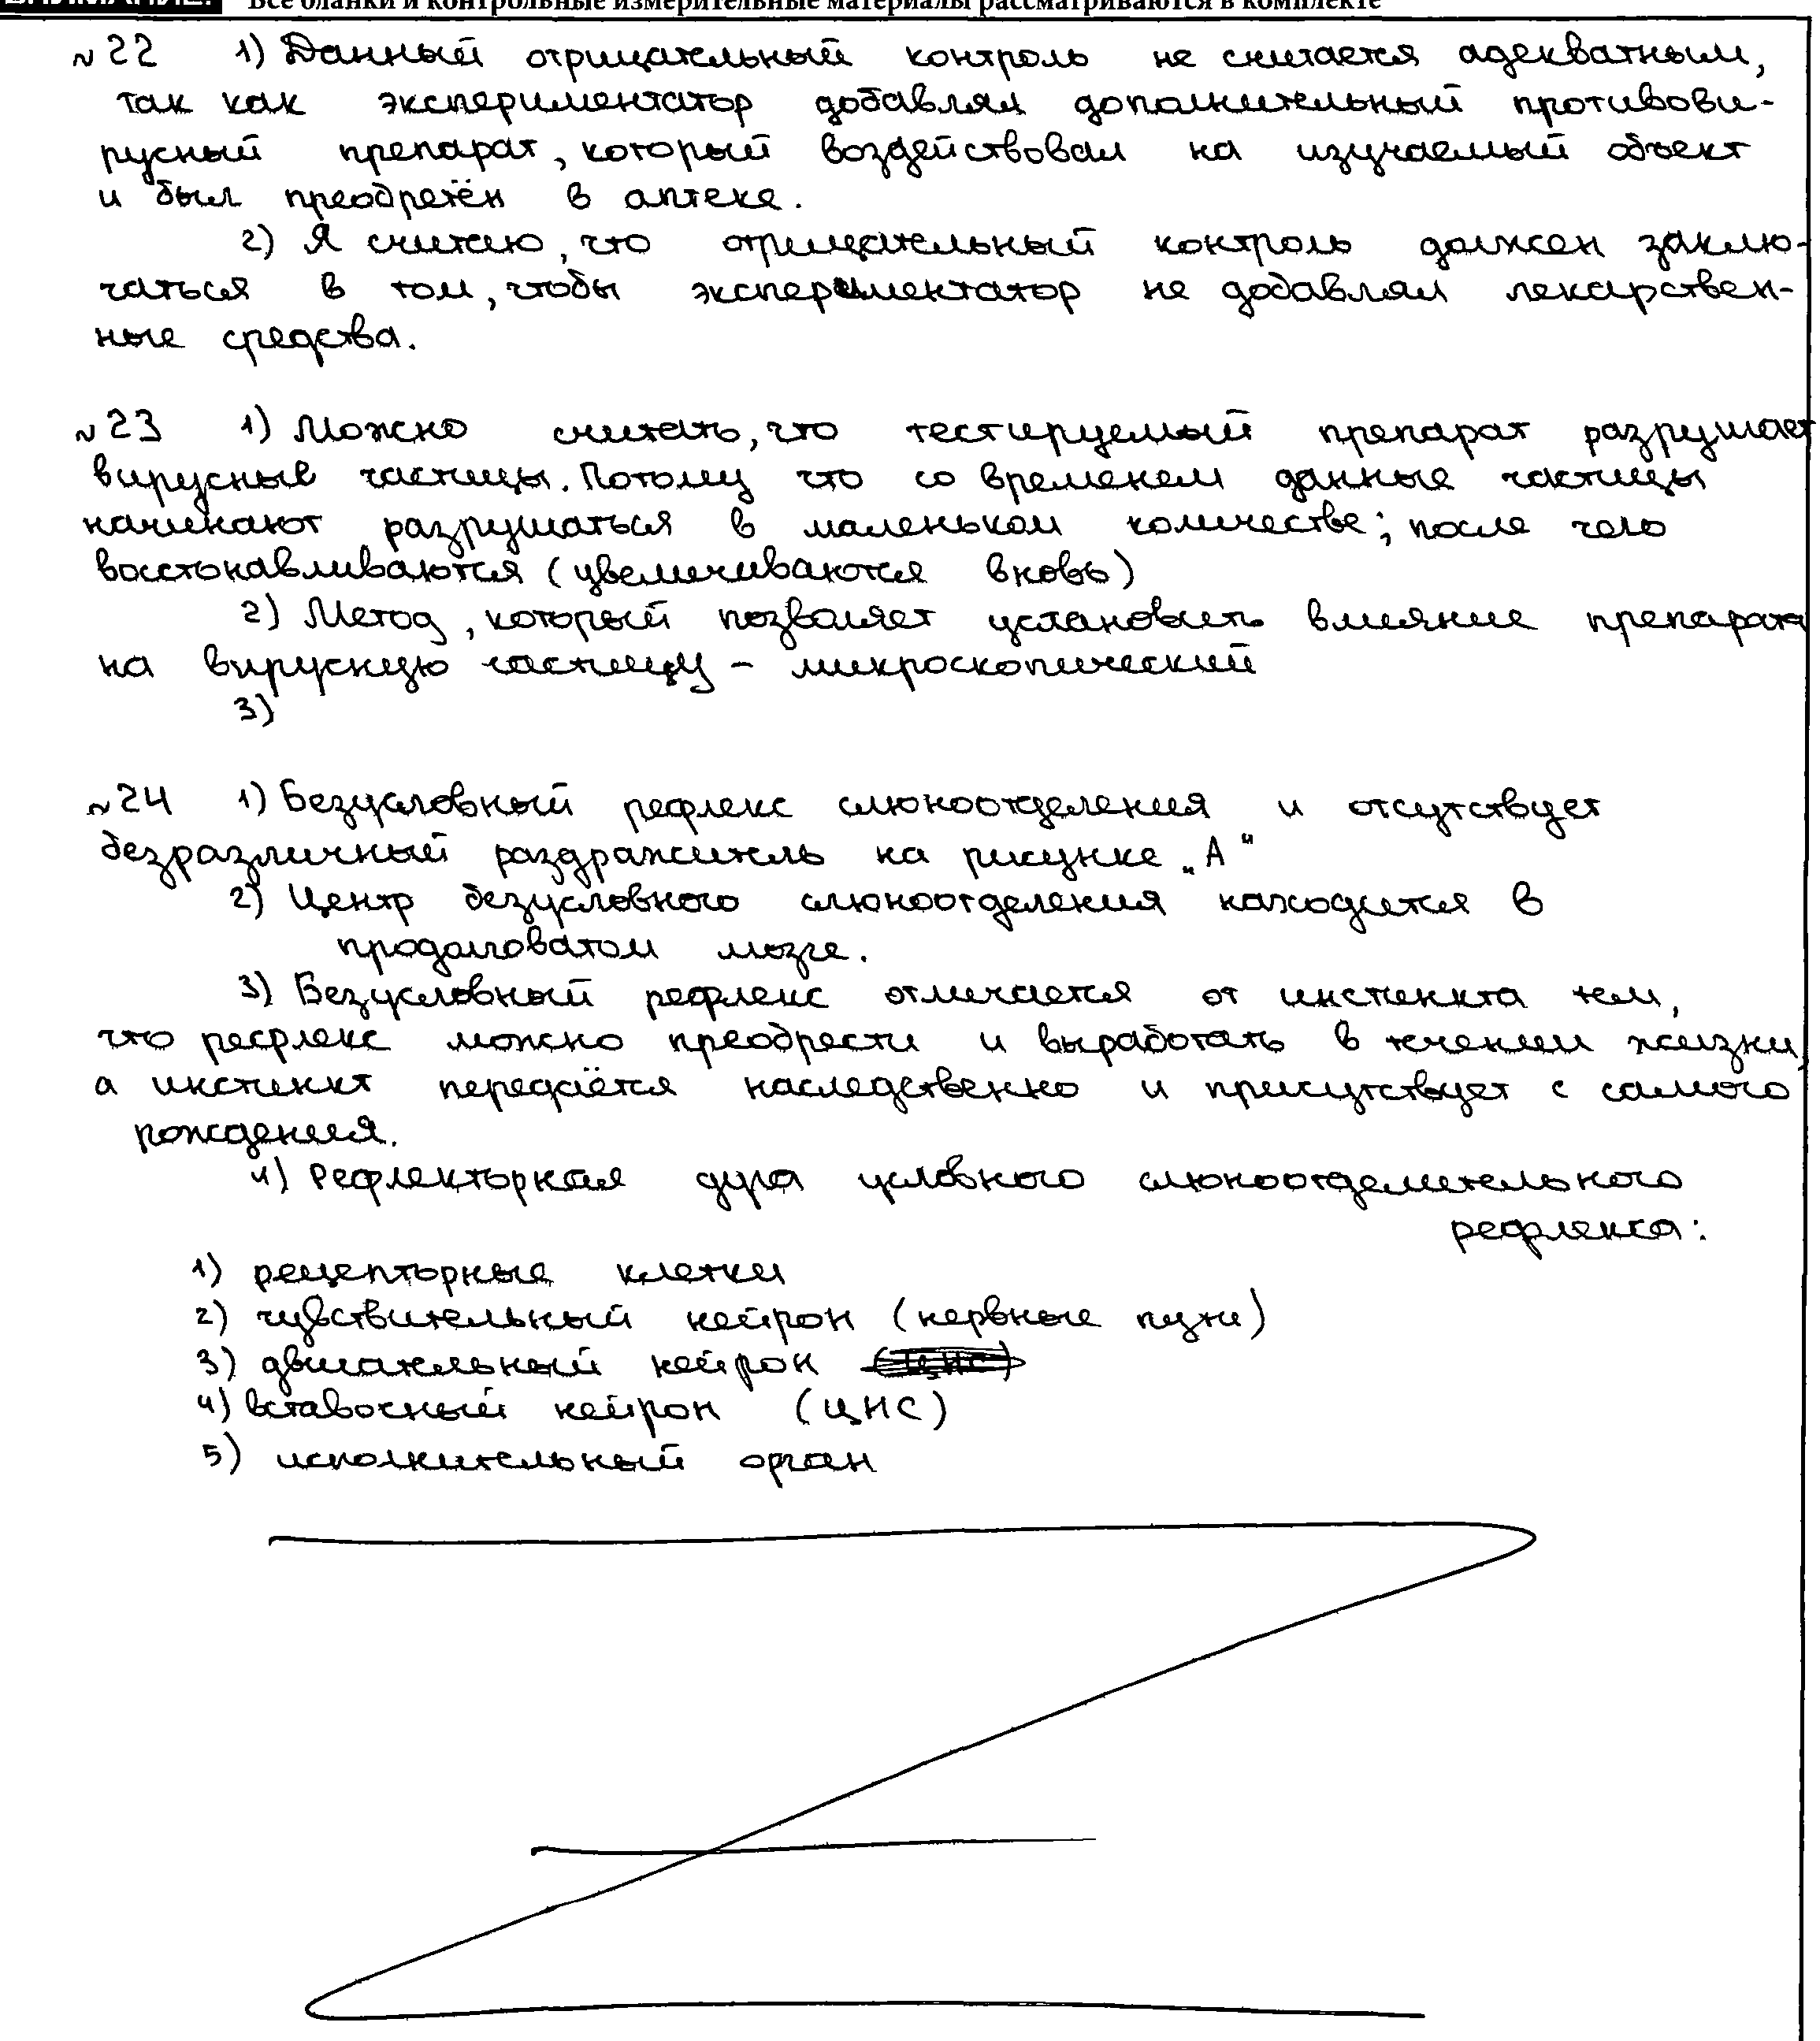 Все бланки и контрольные измерительные материалы рассматриваются в комплекте
№22 1) Данный отрицательный контроль не считается адекватным,
так как экспериментатор добавлял дополнительный противови-
русный препарат, который воздействовал на изучаемый объект
и был преобретён в аптеке.
2) Я считаю, что отрицательный контроль должен заклю-
чаться в том, чтобы экспериментатор не добавлял лекарствен-
ные средства.
№23 1) Можно считать, что тестируемый препарат разрушает
вирусные частицы. Потому что со временем данные частицы
начинают разрушаться в маленьком количестве; после чего
восстонавливаются (увеличиваются вновь)
2) Метод, который позволяет установить влияние препарата
на вирусную частицу – микроскопический
3)
№24 1) Безусловный рефлекс слюноотделения и отсутствует
безразличный раздражитель на рисунке „А“
2) Центр безусловного слюноотделения находится в
продолговатом мозге.
3) Безусловный рефлекс отличается от инстинкта тем,
что рефлекс можно преобрести и выработать в течении жизни,
а инстинкт передаётся наследственно и присутствует с самого
рождения.
4) Рефлекторная дуга условного слюноотделительного
рефлекса:
1) рецепторные клетки
2) чувствительный нейрон (нервные пути)
3) двигательный нейрон
4) вставочный нейрон (ЦНС)
5) исполнительный орган